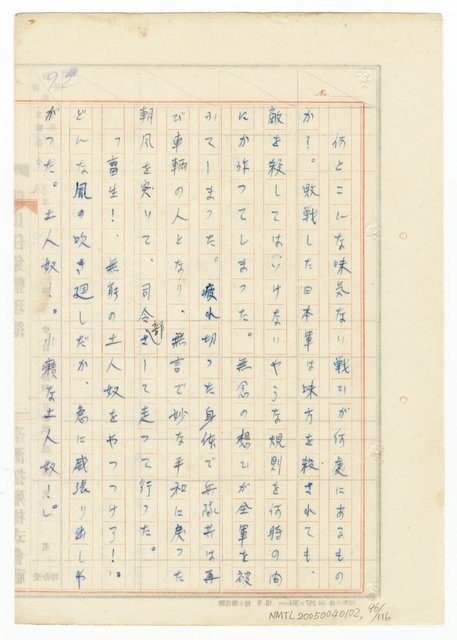 何とこんな味気ない戦ひが何處にあるもの
か？。敗戦した日本軍は味方を殺されても、
敵を殺してはいけないやうな規則を何時の間
にか作ってしまった。無念の想ひが全軍を被
ふてしまった。疲れ切った身体で兵隊共は再
び車輌の人となり、無言で妙な平和に戻った
朝風を突いて、司令部さして走って行った。
「畜生！、無能の土人奴をやっつけろ！。
どんな風の吹き廻しだか、急に威張り出しや
がった。土人奴！。小癪な土人奴！」。
NMTL20050040102, 96/116